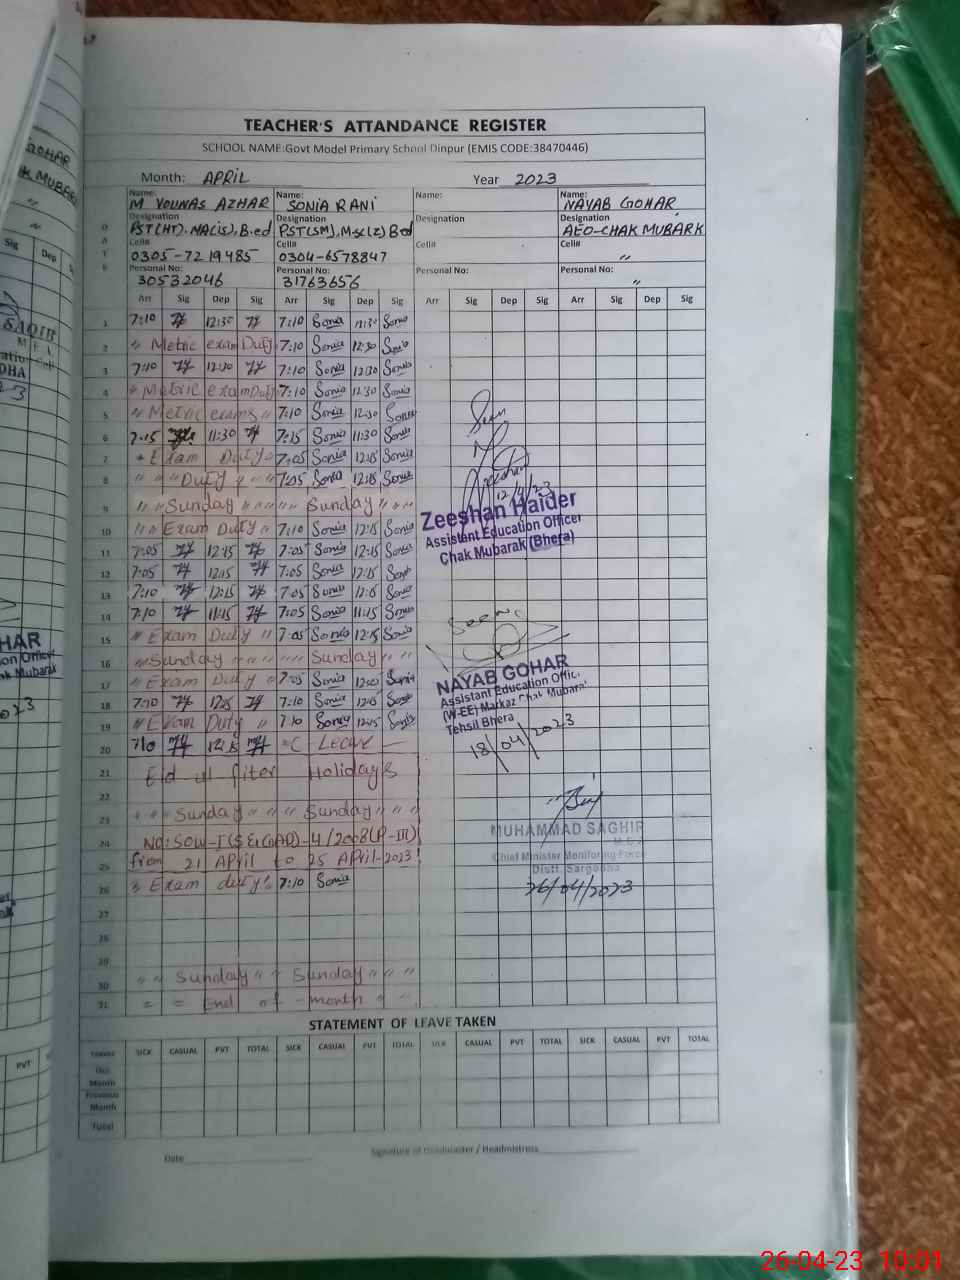 TEACHER'S ATTANDANCE REGISTER
SCHOOL NAME:Govt Model Primary School Dinpur (EMIS CODE:38470446)
Month: APRIL Year 2023
Name: Name: Name: Name:
M YOUNAS AZHAR SONIA RANI NAYAB GOHAR
Designation Designation Designation Designation
PST(HT). MA(is), B.ed PST(SM), M.sc(Z) B.ed AEO-CHAK MUBARK
Cell# Cell# Cell# Cell#
0305-7219485 0304-6578847 "
Personal No: Personal No: Personal No: Personal No:
30532046 31763656 "
Arr Sig Dep Sig Arr Sig Dep Sig Arr Sig Dep Sig Arr Sig Dep Sig
1 7:10 12:30 7:10 Sonia 12:30 Sonia
2 " Metric exam Duty 7:10 Sonia 12:30 Sonia
3 7:10 12:30 7:10 Sonia 12:30 Sonia
4 " Metric exam Duty 7:10 Sonia 12:30 Sonia
5 " Metric exams " 7:10 Sonia 12:30 Sonia
6 7:15 11:30 7:15 Sonia 11:30 Sonia
7 " Exam Duty " 7:05 Sonia 12:15 Sonia
8 " " " Duty " " " 7:05 Sonia 12:15 Sonia
12/4/23
9 " " Sunday " " " " " Sunday " " "
Zeeshan Haider
Assistant Education Officer
Chak Mubarak (Bhera)
10 " " Exam Duty " 7:10 Sonia 12:15 Sonia
11 7:05 12:15 7:05 Sonia 12:15 Sonia
12 7:05 12:15 7:05 Sonia 12:15 Sonia
13 7:10 12:15 7:05 Sonia Sonia
14 7:10 11:15 7:05 Sonia 11:15 Sonia
Seen
15 " Exam Duty " 7:05 Sonia 12:15 Sonia
16 " Sunday " " " " " Sunday " " "
17 " Exam Duty " 7:05 Sonia Sonia
NAYAB GOHAR
Assistant Education Offic.
(W-EE) Markaz Chak Mubarak
Tehsil Bhera
18/04/2023
18 7:10 7:10 Sonia 12:45 Sonia
19 " Exam Duty " 7:10 Sonia 12:45 Sonia
20 7:10 12:15 C - Leave
21 Eid ul fiter Holidays
22
23 " " " Sunday " " " Sunday " " "
24 NO:SOW-I(S&EIGAD)-4/2008(P-III)
25 from 21 April to 25 April-2023
MUHAMMAD SAGHIR
Chief Minister Monitoring Force
Distt. Sargodha
26/04/2023
26 Exam duty 7:10 Sonia
27
28
29
30 " " Sunday " " Sunday " " "
31 = = End of - month " "
STATEMENT OF LEAVE TAKEN
Leaves SICK CASUAL PVT TOTAL SICK CASUAL PVT TOTAL SICK CASUAL PVT TOTAL SICK CASUAL PVT TOTAL
This
Month
Previous
Month
Total
Date
Signature of Headmaster / Headmistress
26-04-23 10:01